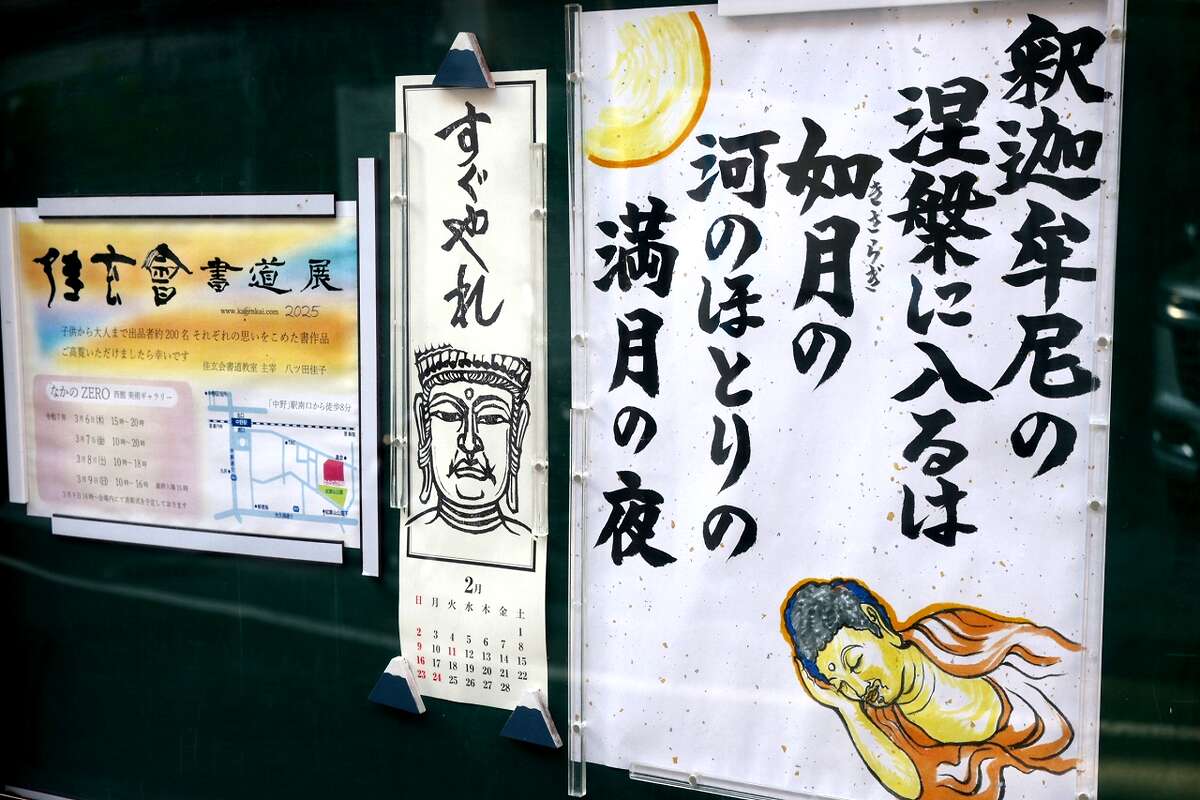 釈迦牟尼の
涅槃に入るは
如月の
きさらぎ
河のほとりの
満月の夜
すぐやれ
2月
日 月 火 水 木 金 土
1
2 3 4 5 6 7 8
9 10 11 12 13 14 15
16 17 18 19 20 21 22
23 24 25 26 27 28
佳玄會書道展
2025
子供から大人まで出品者約200名 それぞれの思いをこめた書作品
ご高覧いただけましたら幸いです
佳玄会書道教室 主宰 八ツ田佳子
なかのZERO 西館 美術ギャラリー
令和7年 3月6日(木) 15時~20時
3月7日(金) 10時~20時
3月8日(土) 10時~18時
3月9日(日) 10時~16時 最終入場15時
「中野」駅南口から徒歩8分